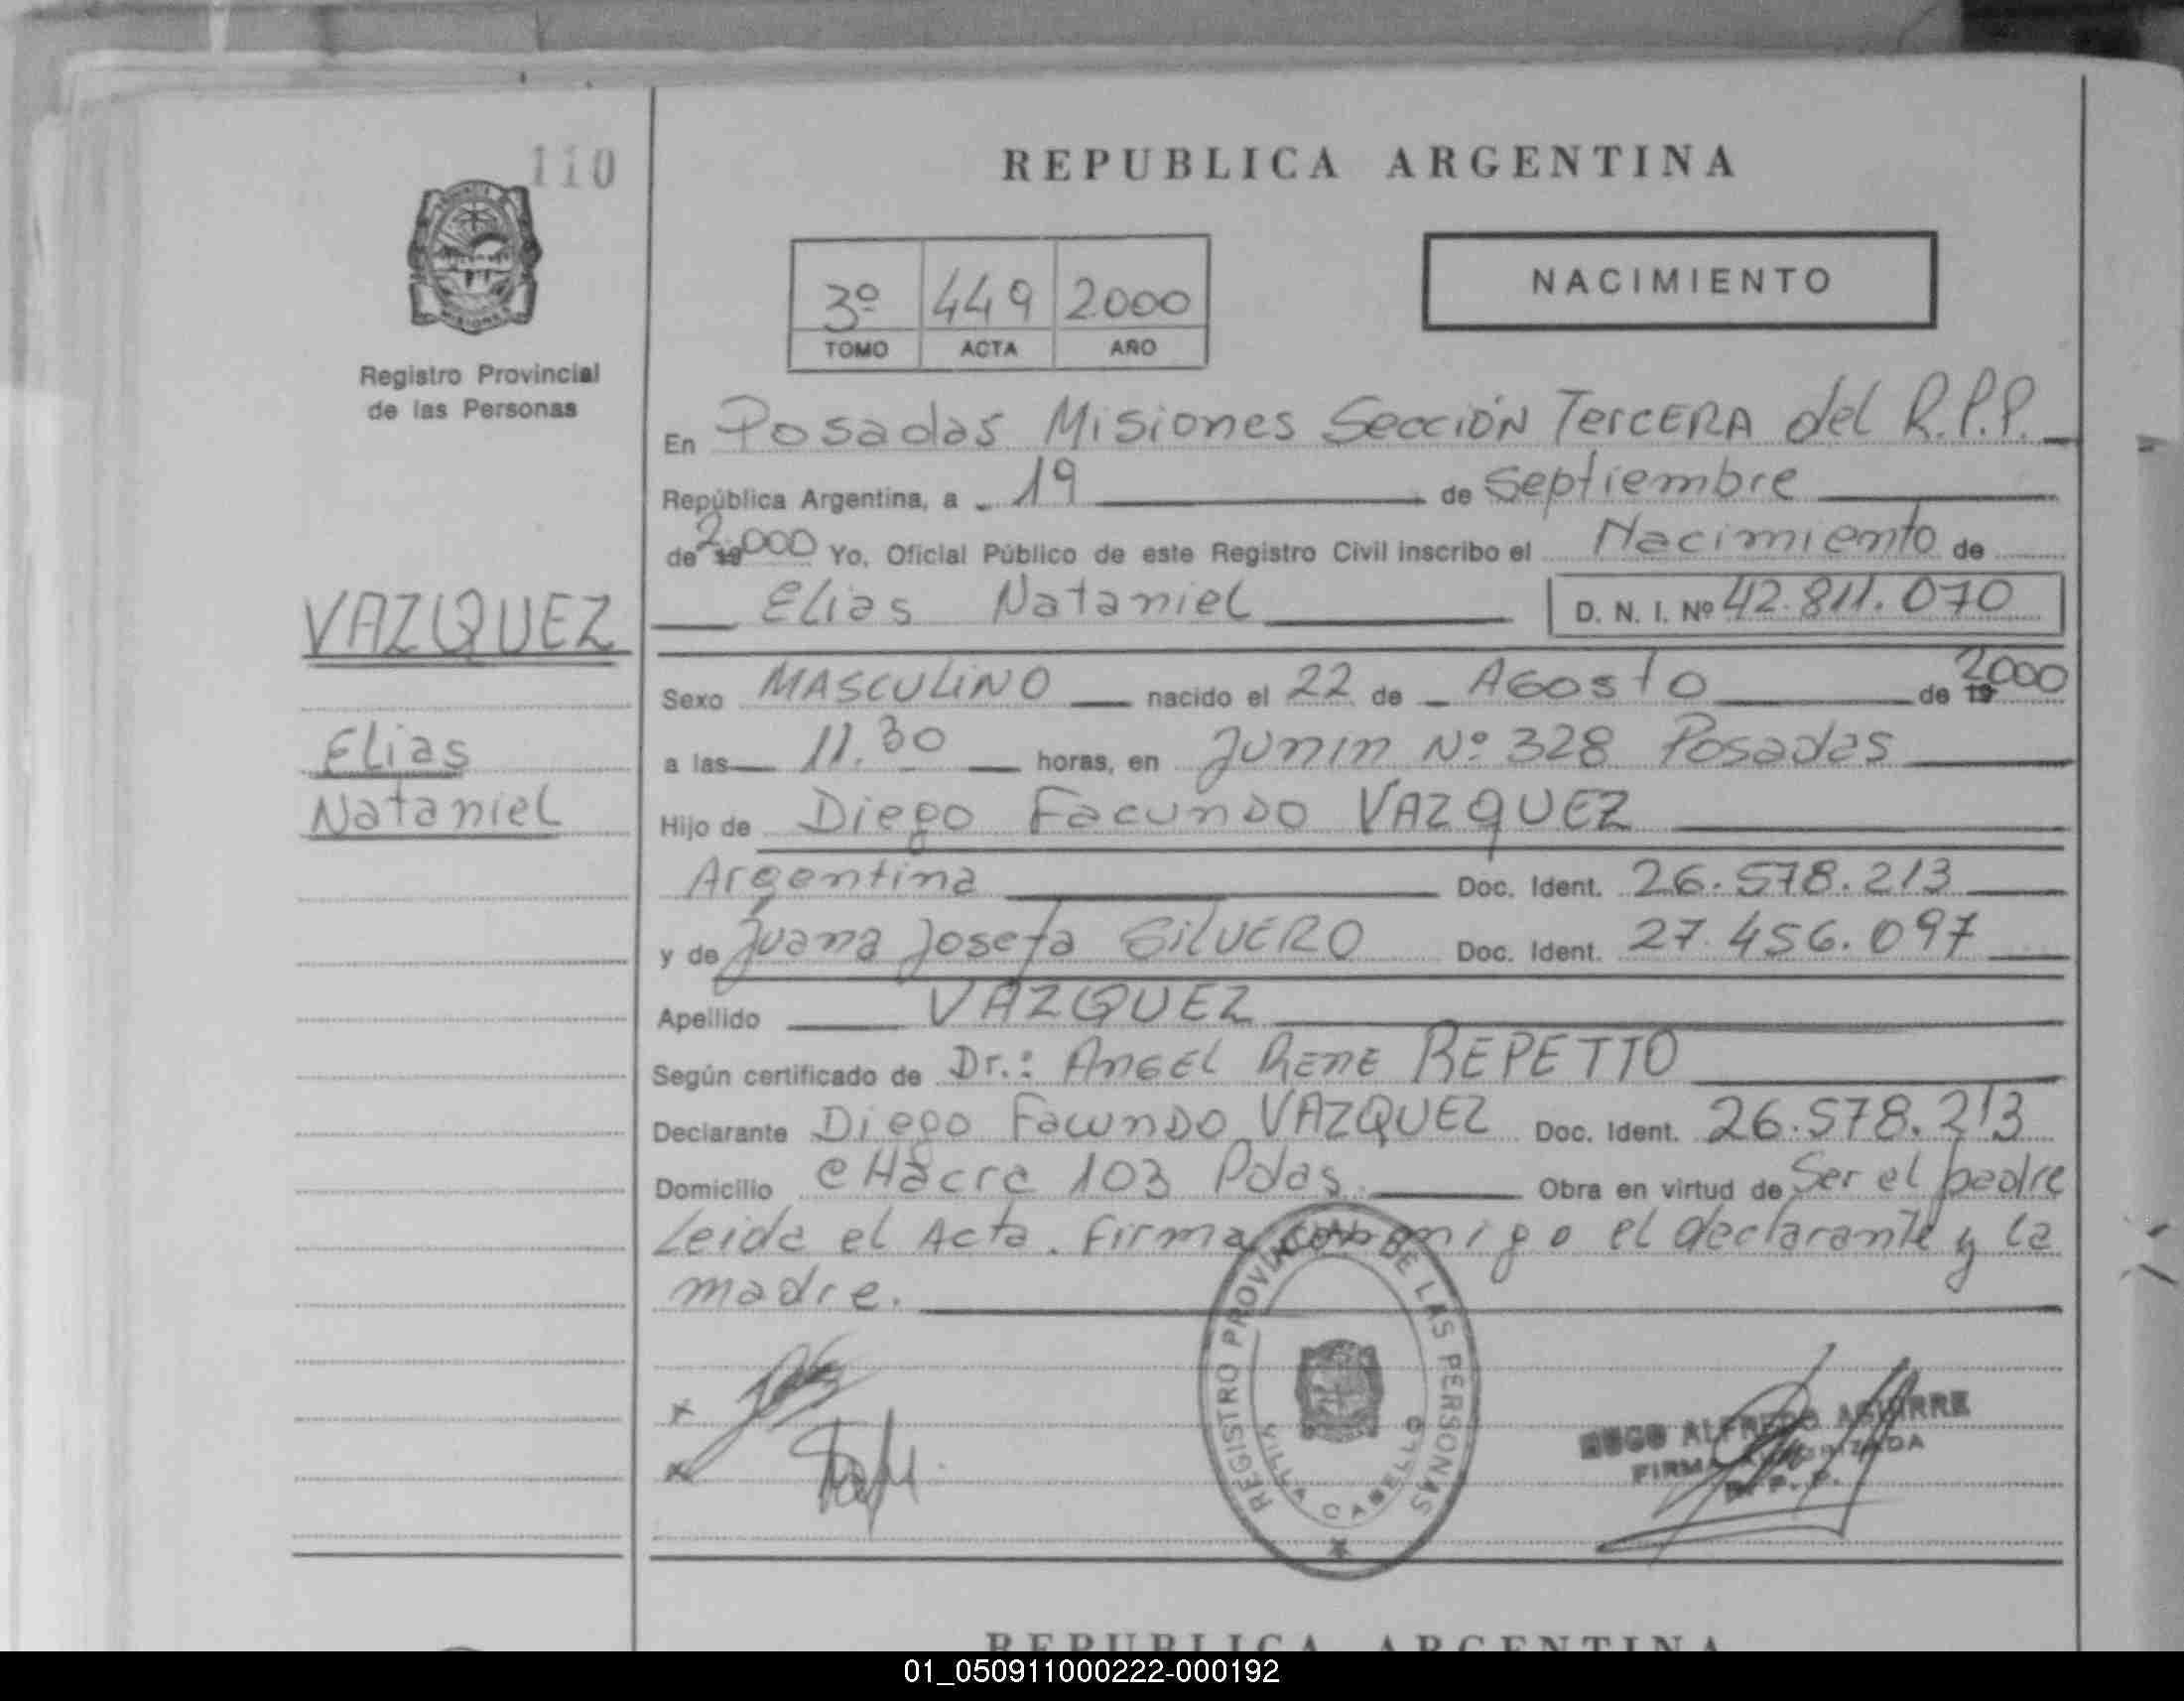 110
REPUBLICA ARGENTINA
NACIMIENTO
3º 449 2000
TOMO ACTA AÑO
Registro Provincial
de las Personas
En Posadas Misiones Sección Tercera del R.P.P.
República Argentina, a 19 de Septiembre
de 2000 Yo, Oficial Público de este Registro Civil inscribo el Nacimiento de
Elias Nataniel D. N. I. Nº 42.811.070
VAZQUEZ
Elias
Nataniel
Sexo MASCULINO nacido el 22 de Agosto de 2000
a las 11.30 horas, en Junin Nº 328 Posadas
Hijo de Diego Facundo VAZQUEZ
Argentina Doc. Ident. 26.578.213
y de Juana Josefa SILVERO Doc. Ident. 27.456.097
Apellido VAZQUEZ
Según certificado de Dr.: Angel Rene REPETTO
Declarante Diego Facundo VAZQUEZ Doc. Ident. 26.578.213
Domicilio CHacra 103 Pdas. Obra en virtud de Ser el padre
Leida el Acta. firma conmigo el declarante y la
madre.
REGISTRO PROVINCIAL DE LAS PERSONAS
VILLA CABELLO
HUGO ALFREDO AGUIRRE
FIRMA AUTORIZADA
R. P. P.
REPUBLICA ARGENTINA
01_050911000222-000192